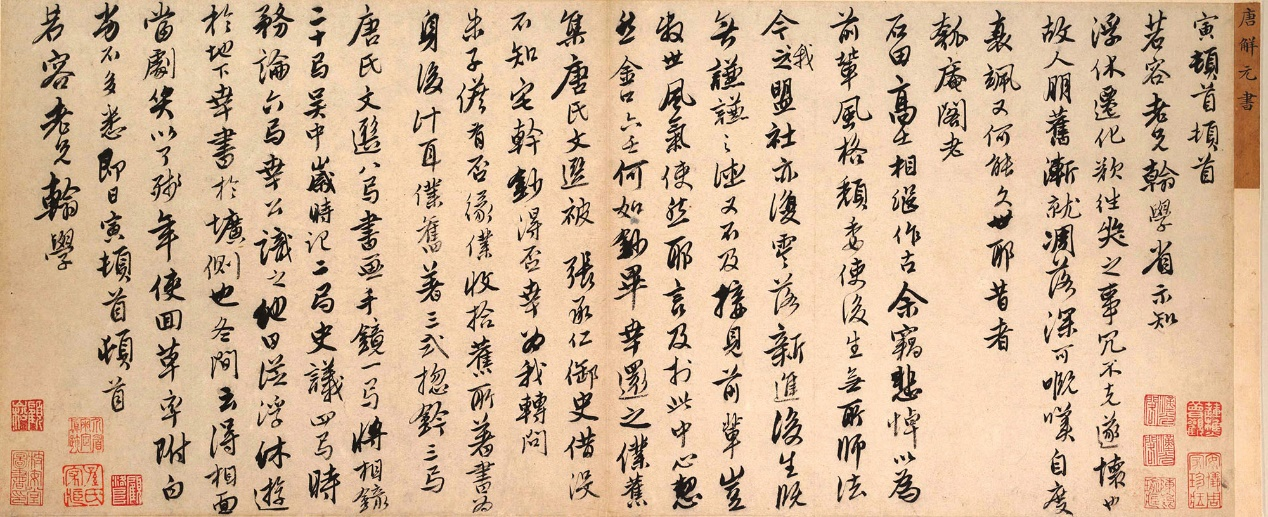 唐解元書
寅頓首頓首
若容老兄翰學省示知
浮休遷化歎往 之事冗不克遂懷也
故人朋舊漸就凋落深可嘅嘆自度
衰颯又何能久世耶昔者
瓠庵閣老
石田高士相繼作古余竊悲悼以為
前輩風格頹委使後生無所師法
今之盟社亦復零落新進後生既
我
無謙謙之德又不及接見前輩豈
世風氣使然耶言及於此中心愁
金口六壬何如鈔畢幸還之僕舊
集唐氏文選被張承仁御史借沒
不知宅幹鈔得否幸為我轉問
朱子儋有否緣僕收拾舊所著書為
身後計耳僕舊著三式捴鈐三局
唐氏文選八局書畫手鏡一局將相錄
二十局吳中歲時記二局史議四局時
務論六局幸公識之他日從浮休遊
於地下幸書於壙側也冬間云得相面
當劇笑以了殘年使回草率附白
尚不多悉即日寅頓首頓首
若容老兄翰學